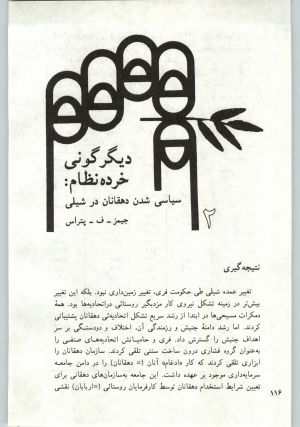 دیگرگونی
خرده‌نظام:
سیاسی شدن دهقانان در شیلی
جیمز ـ ف ـ پتراس
۲
نتیجه‌گیری
تغییر عمده شیلی طی حکومت فری، تغییر زمین‌داری نبود. بلکه این تغییر
بیش‌تر در زمینه تشکل نیروی کار مزدبگیر روستائی دراتحادیه‌ها بود. همهٔ
دمکرات مسیحی‌ها در ابتدا از رشد سریع تشکل‌اتحادیه‌ئی دهقانان پشتیبانی
کردند. اما رشد دامنهٔ جنبش و رزمندگی آن، اختلاف و دودستگی بر سر
اهداف جنبش را گسترش داد. فری و حامیانش اتحادیه‌های صنفی را
به‌عنوان گروه فشاری درون ساخت سنتی تلقی کردند. سازمان دهقانان را
ابزاری تلقی کردند که کار «ادغام» آنان (= دهقانان) را در دامن جامعه
سرمایه‌داری موجود بر عهده داشت. این جامعه به‌سازمان‌های دهقانی برای
تعیین شرایط استخدام دهقانان توسط کارفرمایان روستائی (=اربابان) نقشی
۱۱۶